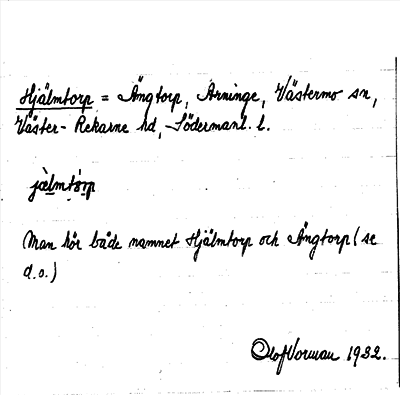 Hjälmtorp = Ängtorp, Arninge, Västermo sn,
Väster-Rekarne hd, Södermanl. l.
jälmtórp
Man hör både namnet Hjälmtorp och Ängtorp (se
d.o.)
Olof Vorman 1932.